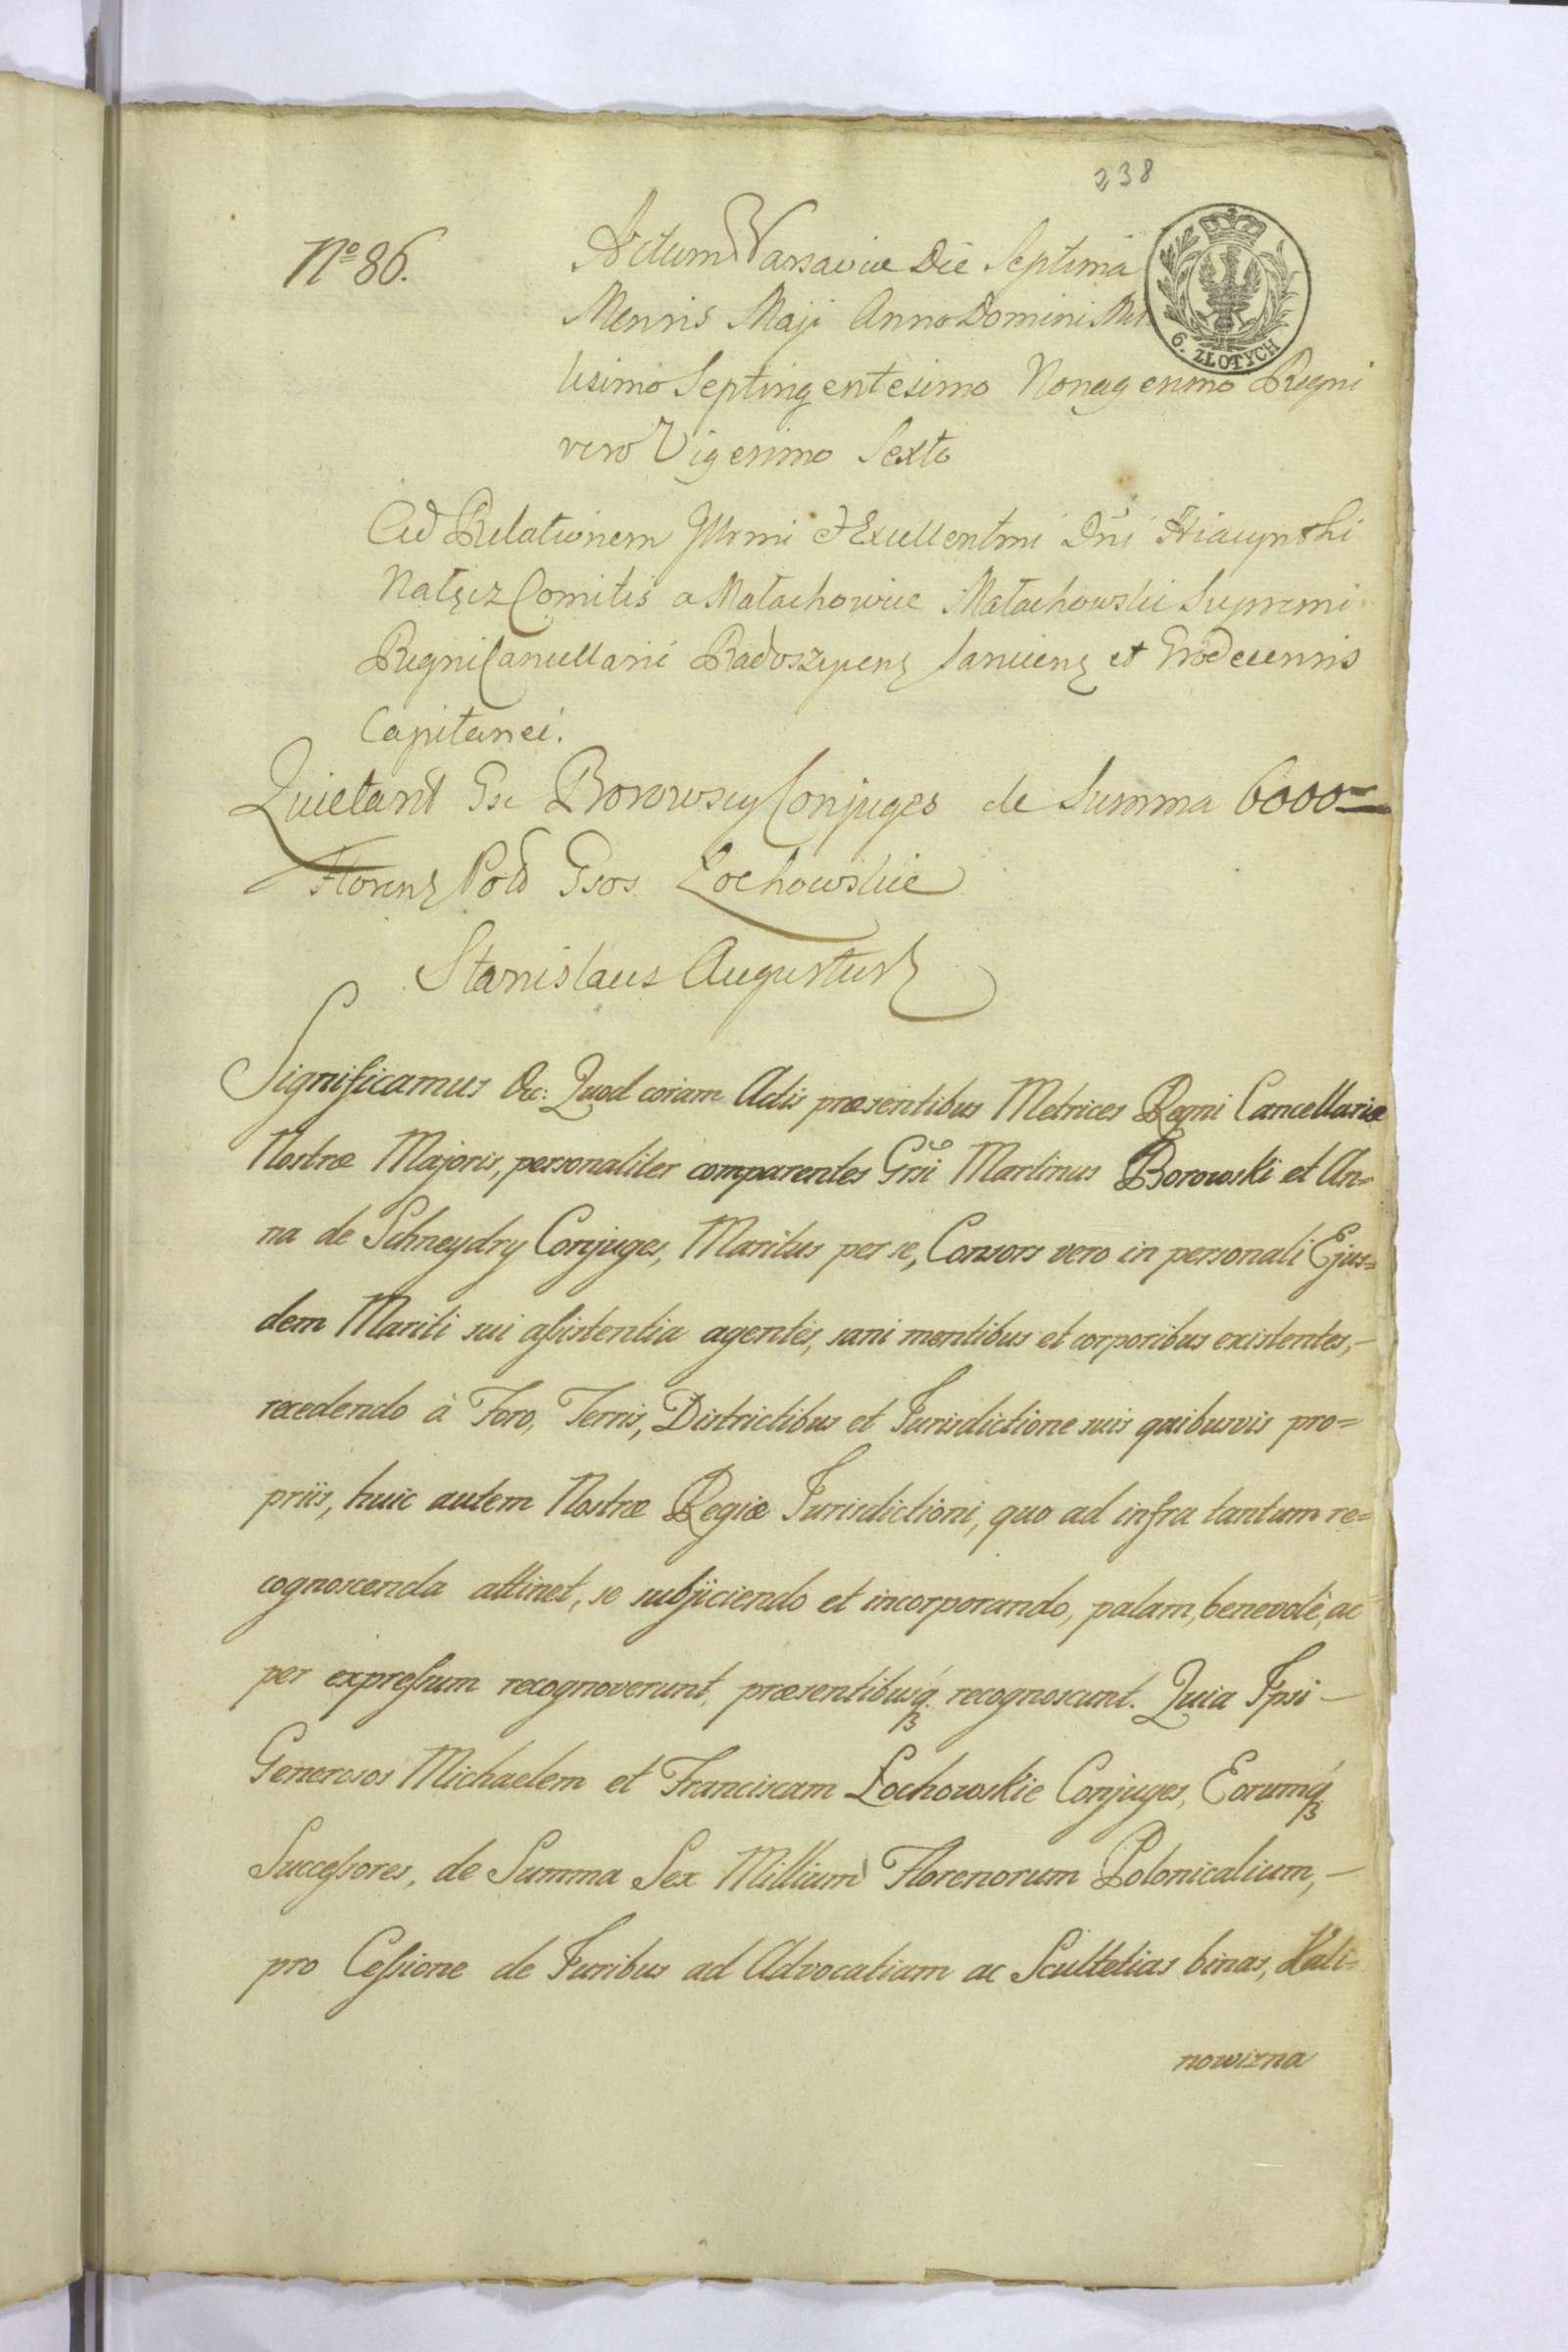 238
Nº 86.
Actum Varsaviæ Die Septima
6. ZŁOTYCH
Mensis Maji Anno Domini Mil
lesimo Septingentesimo Nonagesimo Regni
vero Vigesimo Sexto
Ad Relationem Illrmi Excellentmi Dni Hiacynthi
Nałęcz Comitis a Małachowice Małachowski Supremi
Regni Cancellarii Radoszycen Sanicen et Grodecensis
Capitanei.
Quietant Gsi Borowscy Conjuges de Summa 6000
Floren Pold Gsos Łochowskie
Stanislaus Augustus
Significamus &c: Quod coram Actis præsentibus Metrices Regni Cancellariæ
Nostræ Majoris, personaliter comparentes Grsi Martinus Borowski et An=
na de Schneydry Conjuges, Maritus per se, Consors vero in personali Ejus=
dem Mariti sui assistentia agentes, sani mentibus et corporibus existentes,–
recedendo à Foro, Terris, Districtibus et Jurisdictione suis quibusvis pro=
priis, huic autem Nostræ Regiæ Jurisdictioni, quo ad infra tantum re=
cognoscenda attinet, se subjiciendo et incorporando, palam, benevolè, ac
per expressum recognoverunt, præsentibusq; recognoscunt. Quia Ipsi –
Generosos Michaelem et Franciscam Łochowskie Conjuges, Eorumq;
Successores, de Summa Sex Millium Florenorum Polonicalium, –
pro Cessione de Juribus ad Advocatiam ac Scultetias binas, Kali=
nowizna